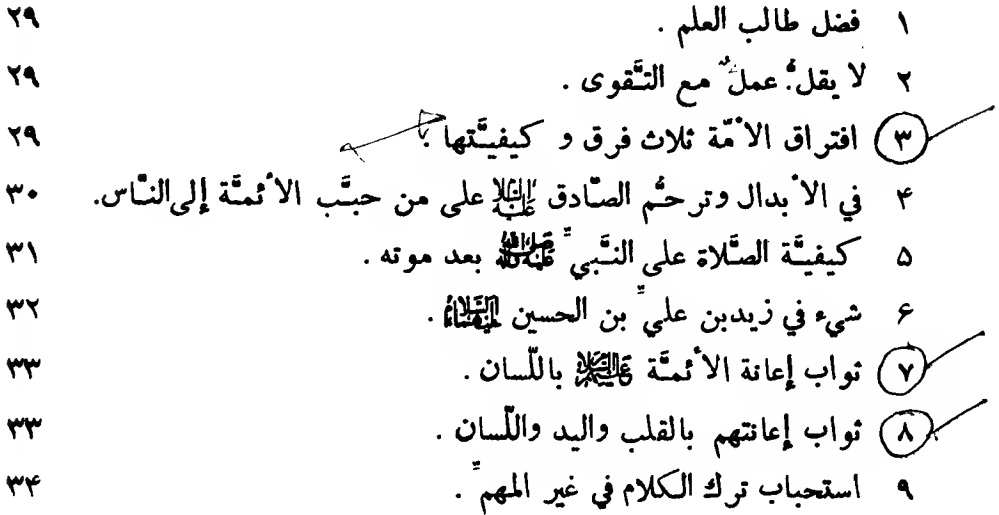 ١ فضل طالب العلم . ٢٩
٢ لا يقلّ عمل مع التّقوى . ٢٩
٣ افتراق الأمّة ثلاث فرق و كيفيّتها . ٢٩
۴ في الأبدال وترحُّم الصّادق عليه السلام على من حبَّب الأئمّة إلى النّاس. ٣٠
۵ كيفيّة الصَّلاة على النَّبيّ صلى الله عليه وآله بعد موته . ٣١
۶ شيء في زيدبن عليّ بن الحسين عليهما السلام . ٣٢
٧ ثواب إعانة الأئمّة عليهم السلام باللّسان . ٣٣
٨ ثواب إعانتهم بالقلب واليد واللّسان . ٣٣
٩ استحباب ترك الكلام في غير المهمّ . ٣۴